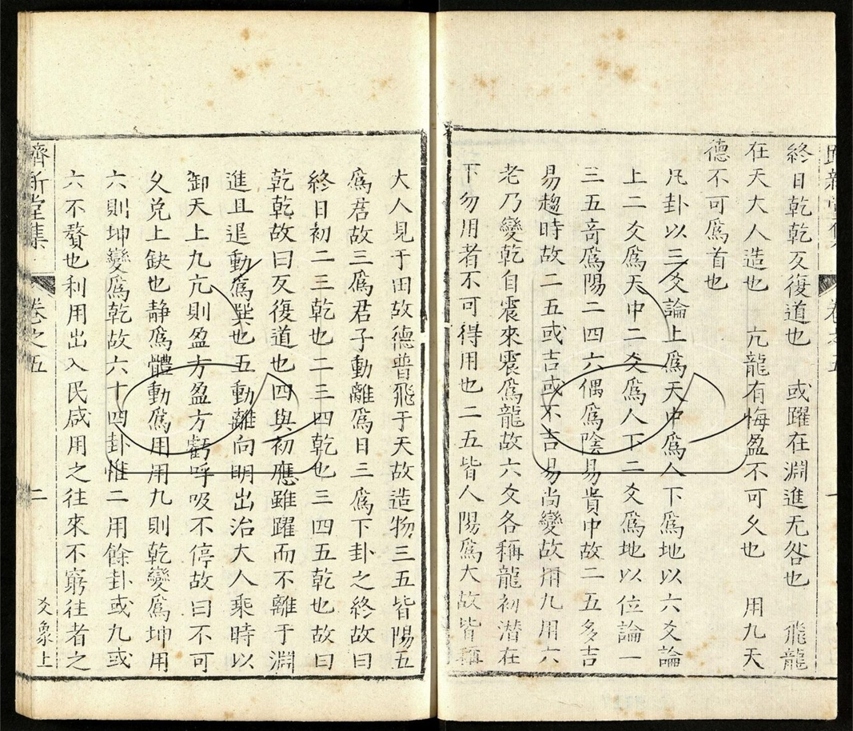 終日乾乾反復道也　或躍在淵進无咎也　飛龍
在天大人造也　亢龍有悔盈不可久也　用九天
德不可爲首也
凡卦以三爻論上爲天中爲人下爲地以六爻論
上二爻爲天中二爻爲人下二爻爲地以位論一
三五竒爲陽二四六偶爲陰易貴中故二五多吉
易趨時故二五或吉或不吉易尚變故用九用六
老乃變乾自震來震爲龍故六爻各稱龍初潜在
下勿用者不可得用也二五皆人陽爲大故皆稱
大人見于田故德普飛于天故造物三五皆陽五
爲君故三爲君子動離爲日三爲下卦之終故曰
終日初二三乾也二三四乾也三四五乾也故曰
乾乾故曰反復道也四與初應雖躍而不離于淵
進且退動爲巽也五動離向明出治大人乘時以
御天上九亢則盈方盈方虧呼吸不停故曰不可
久兌上缺也静爲體動爲用用九則乾變爲坤用
六則坤變爲乾故六十四卦惟二用餘卦或九或
六不贅也利用出入民咸用之往來不窮往者之
新堂集
卷之五
二
爻象上